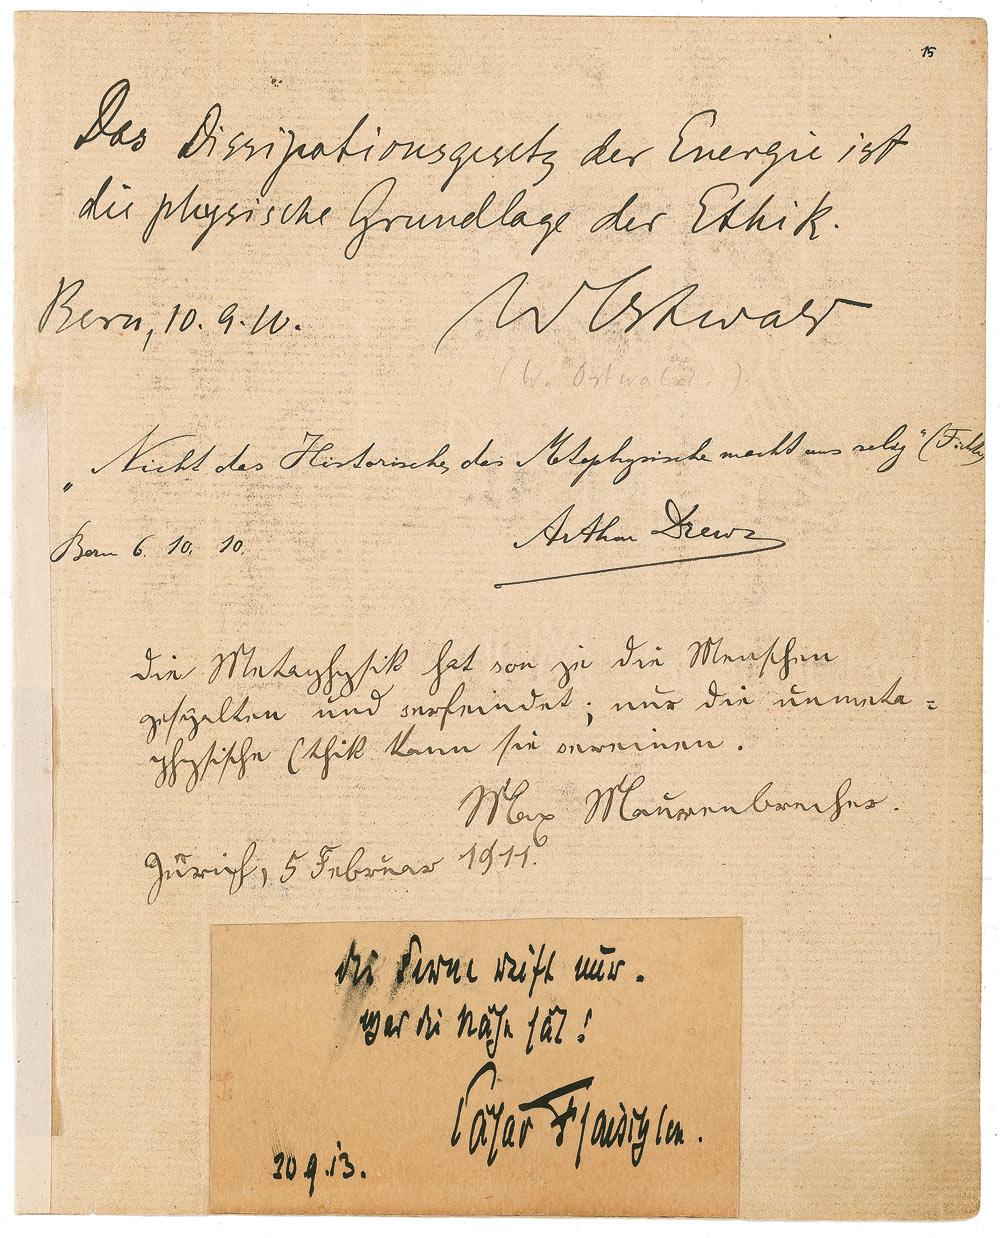 15
Das Dissipationsgesetz der Energie ist
die physische Grundlage der Ethik.
Bern, 10. 9. 10.
W Ostwald
(W. Ostwald.)
„Nicht das Historische, das Metaphysische macht uns selig“ (Fichte)
Arthur Drews
Bern 6. 10. 10.
Die Metaphysik hat von je die Menschen
gespalten und verfeindet; nur die unmeta=
physische Ethik kann sie vereinen.
Max Maurenbrecher.
Zürich, 5 Februar 1911.
die Ferne reift nur.
was die Nähe sät!
Cäsar Flaischlen.
20 9. 13.